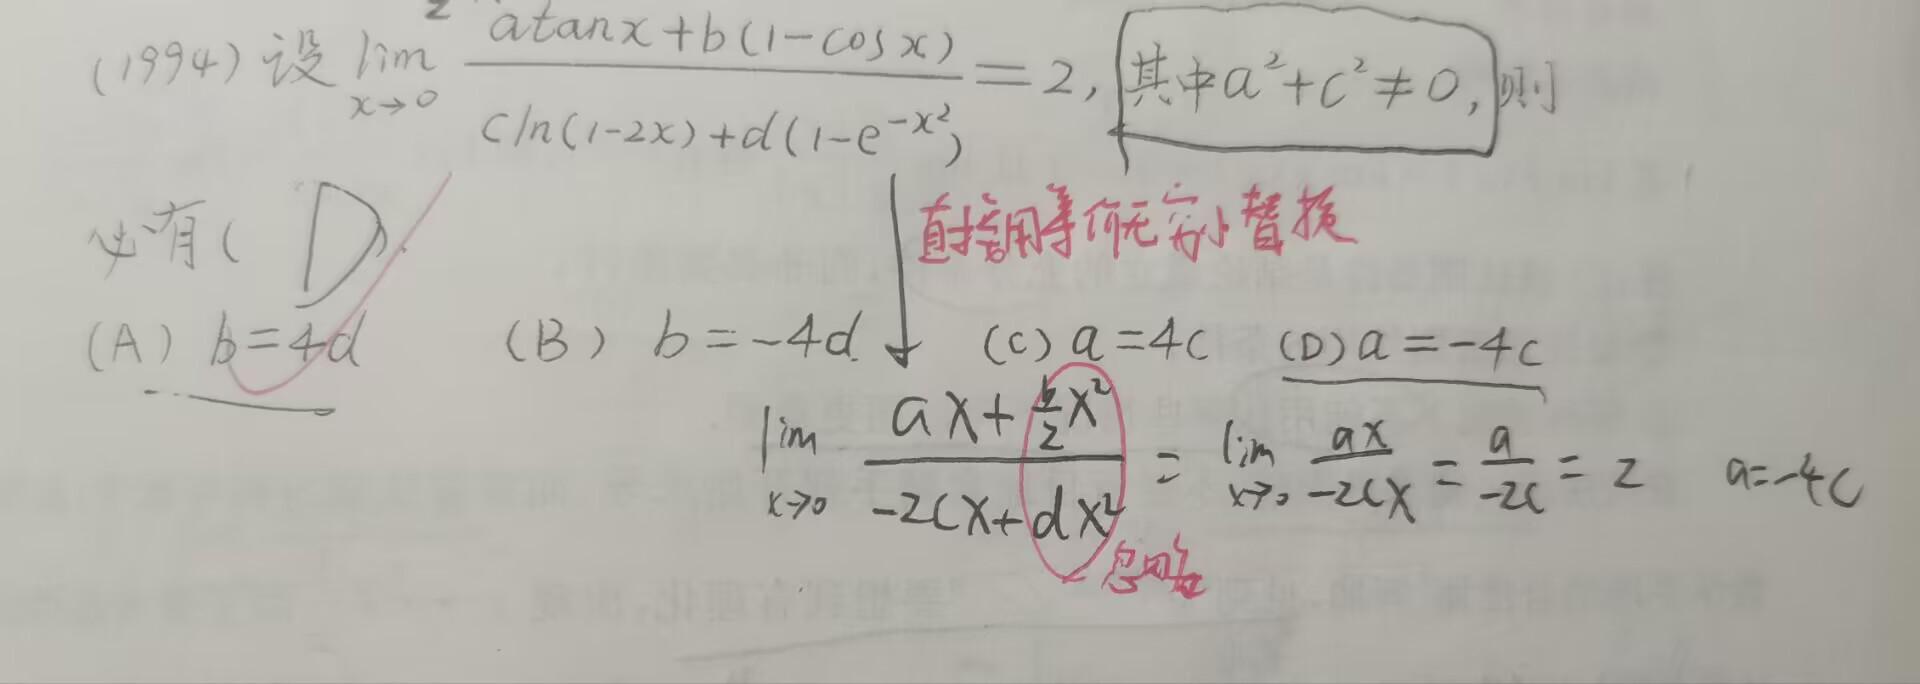 (1994) 设 lim x→0 (atanx+b(1-cosx))/(cln(1-2x)+d(1-e^-x²)) = 2, 其中a²+c²≠0, 则
必有( D ).
直接用等价无穷小替换
(A) b=4d (B) b=-4d (C) a=4c (D) a=-4c
lim x→0 (ax+b/2 x²)/(-2cx+dx²) = lim x→0 ax/-2cx = a/-2c = 2 a=-4c
忽略